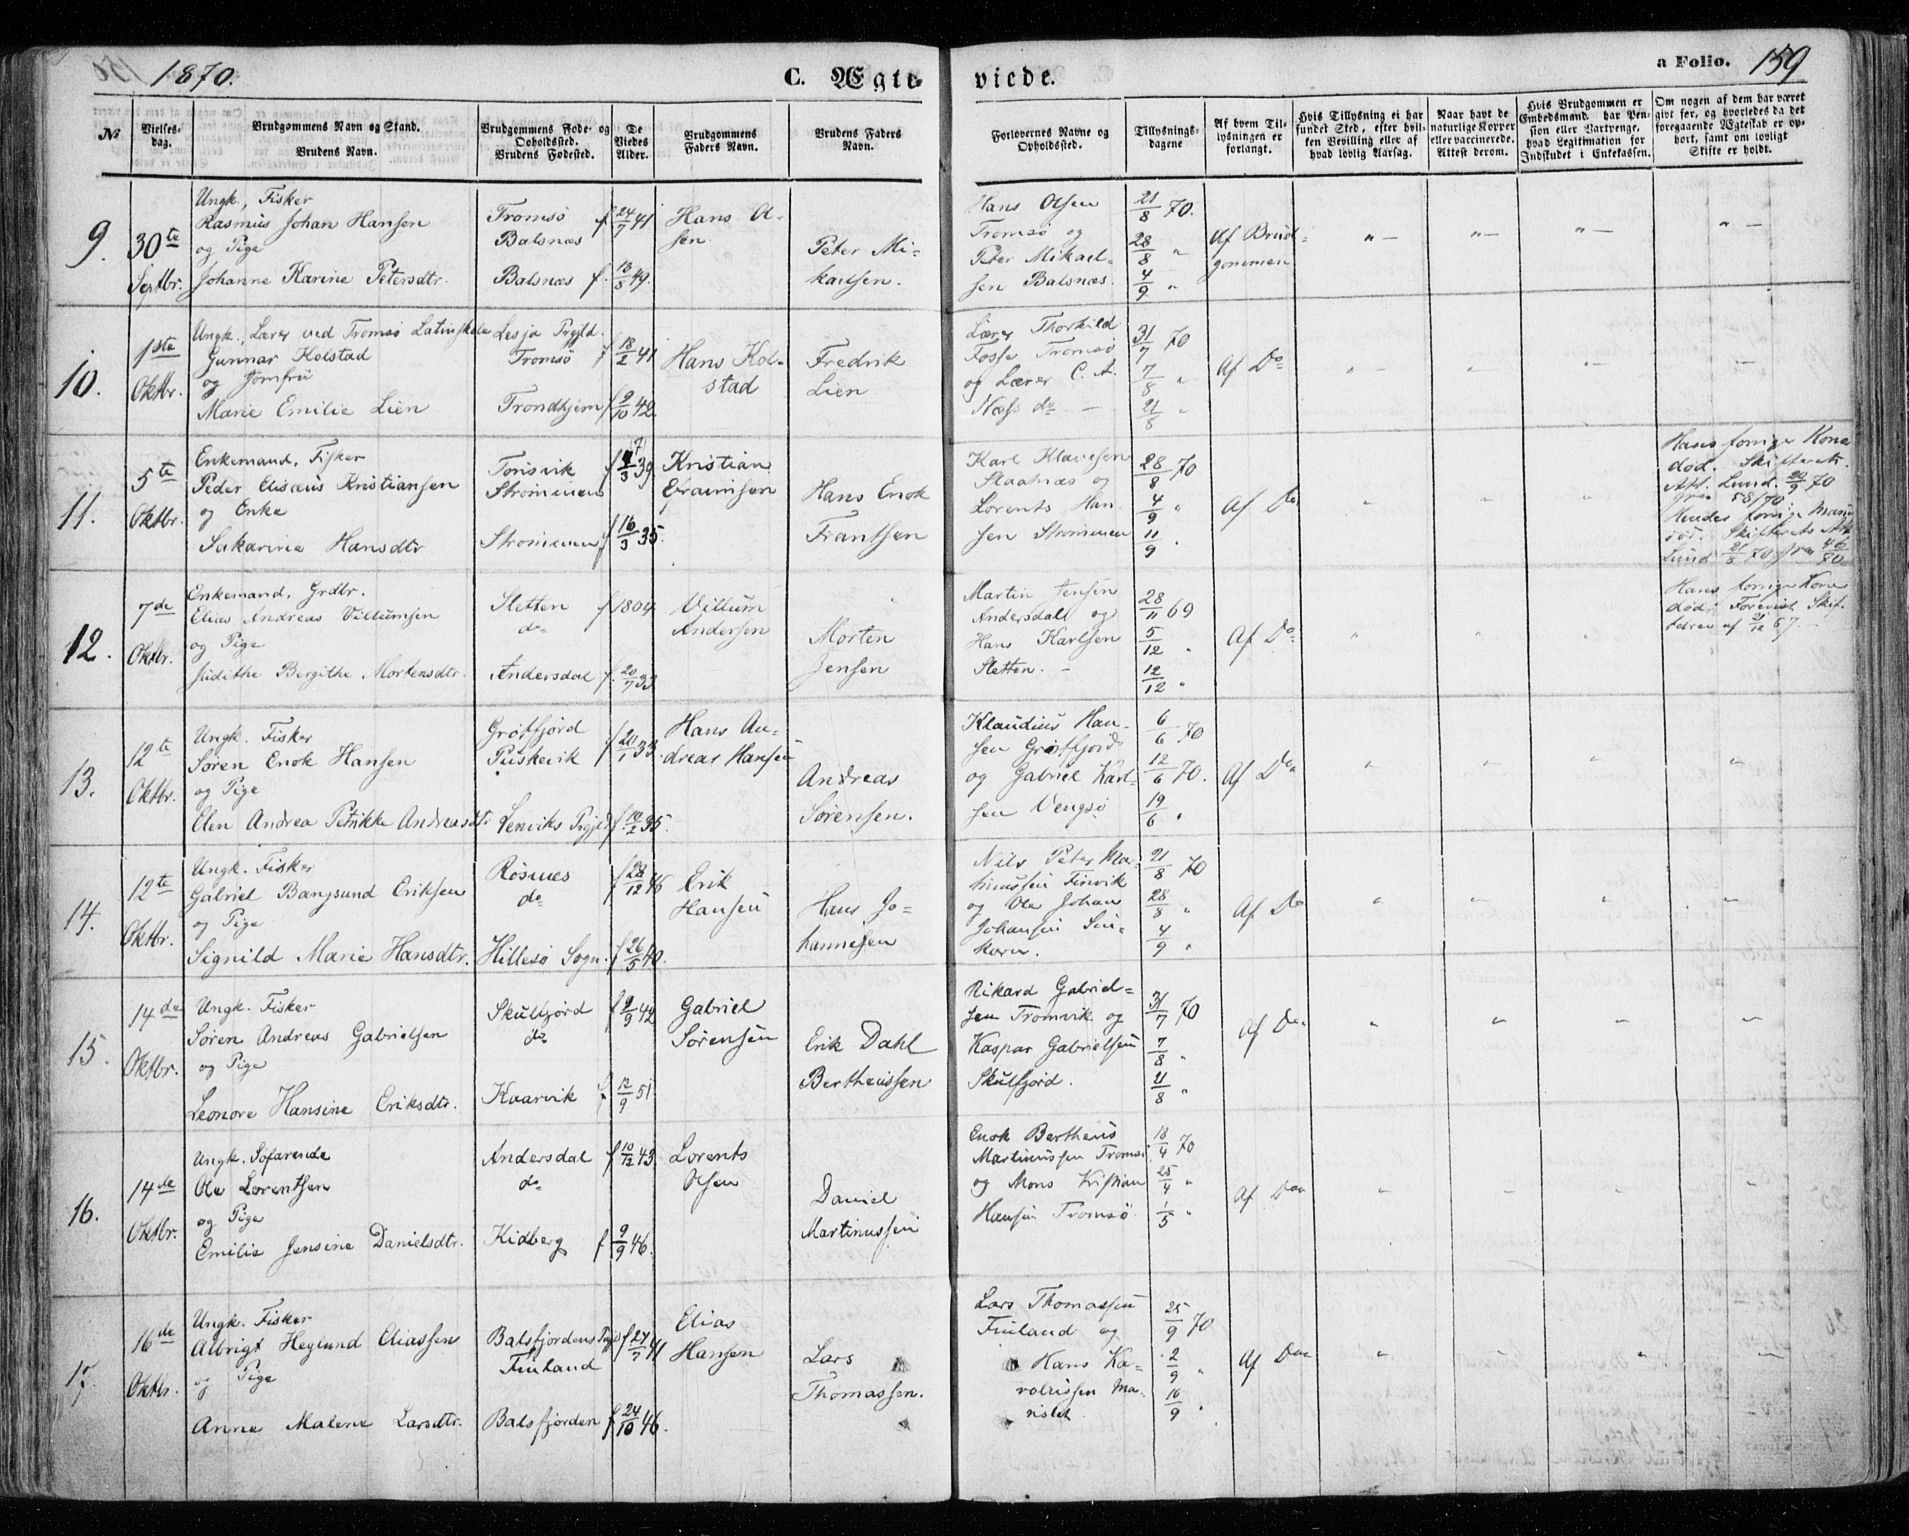 1870.
C. Ægteviede.
a Folio. 159
No
Vielses-dag.
Brudgommens Navn og Stand.
Brudens Navn.
Brudgommens Føde- og Opholdssted.
Brudens Fødested.
De Viedes Alder.
Brudgommens Faders Navn.
Brudens Faders Navn.
Forlovernes Navne og Opholdssted.
Tillysnings-dagene
Af hvem Tillysningen er forlangt.
Hvis Tillysning ei har fundet Sted, efter hvilken Bevilling eller af hvad lovlig Aarsag.
Naar havt de naturlige Kopper eller vaccinerede. Attest derom.
Hvis Brudgommen er Embedsmand, har Pension eller Vartpenge, hvad Legitimation for Indskudet i Enkekassen.
Om nogen af dem har været gift før, og hvorledes da det foregaaende Ægteskab er ophørt, samt om lovligt Skifte er holdt.
9. 30te Septbr.
Ungk., Fisker
Rasmus Johan Hansen
og Pige
Johanne Karine Petersdtr.
Tromsø
Balsnæs
Balsnæs
f 24/7 41
f. 13/8 49.
Hans Olsen
Peter Mikaelsen.
Hans Olsen
Tromsø og
Peter Mikaelsen Balsnæs.
21/8 70.
28/8 "
4/9 "
Af Brudgommen
10. 1ste Oktbr.
Ungk., Lærer ved Tromsø Latinskole
Gunnar Kolstad
og Jomfru
Marie Emilie Lien
Lesja Prgjld.
Tromsø
Trondhjem
f 18/2 41
f 9/10 42.
Hans Kolstad
Fredrik Lien
Lærer Thorkild
Fosse Tromsø
og Lærer C. A.
Næss do
31/7 70
7/8 "
21/8 "
Af Do
11. 5te Oktbr.
Enkemand, Fisker
Peder Elisæus Kristiansen
og Enke
Sakarina Hansdtr
Tonsvik
Strømmen
Strømmen
f 16/3 35.
Kristian Efraimsen
Hans Enok Frantsen
Karl Klausen
Skaatnæs og
Lorents Hansen Strømmen
28/8 70
4/9 "
11/9 "
Af Do
Hans forrige Kone
død. Skifteretts
Att. Lund. 20/9 70
58/70
Hendes forrige Mand
død. Skifterets Att.
12. 7de Oktbr.
Enkemand, Grdbr.
Elias Andreas Villumsen
og Pige
Judithe Bergithe Mortensdtr.
Sletten
do
Andersdal
f 1804
f. 20/7 33
Villum Andersen
Morten Jensen
Martin Jensen
Andersdal og
Hans Karlsen
Sletten.
28/11 69
5/12 "
12/12 "
Af Do
Hans forrige Kone
død. Forevist Skifte-
13. 12te Oktbr.
Ungk. Fisker
Søren Enok Hansen
og Pige
Elen Andrea Petrikke Andreasdtr
Grøtfjord
Puskevik
Lenviks Prgjld
f 20/1 33.
f. 10/2 35.
Hans Andreas Hansen
Andreas Sørensen.
Klaudius Hansen Grøtfjord
og Gabriel Karlsen Vengsø
6/6 70
12/6 70.
19/6 "
Af Do
14. 12te Oktbr.
Ungk. Fisker
Gabriel Bangsund Eriksen
og Pige
Signild Marie Hansdtr.
Røsnæs
do
Hillesø Sogn.
f 28/12 46
f 26/5 40.
Erik Hansen
Hans Johannesen
Nils Peter
Finvik
og Ole Johan
Johansen
21/8 70
28/8 "
4/9 "
Af Do
15. 14de Oktbr.
Ungk. Fisker
Søren Andreas Gabrielsen
og Pige
Leonore Hansine Eriksdtr.
Skulfjord
do
Kvarvik
f 9/9 42
f 12/9 51
Gabriel Sørensen
Erik Dahl Bertheussen
Rikard Gabrielsen Tromvik og
Kaspar Gabrielsen
Skulfjord.
31/7 70
7/8 "
21/8 "
Af Do
16. 14de Oktbr.
Ungk. Søfarende
Ole Lorentsen
og Pige
Emilie Jensine Danielsdtr.
Andersdal
do
Kidberg
f 10/12 43.
f 9/9 46.
Lorents Olsen
Daniel Martinussen
Enok Bertheus
Martinussen Tromsø
og Mons Kristian
Hansen Tromsø.
18/4 70
25/4 "
1/5 "
Af Do
17. 16de Oktbr.
Ungk. Fisker
Albrigt Heglund Eliassen
og Pige
Anne Malene Larsdtr.
Balsfjordens Prgjld
Finland
Balsfjorden
f 27/7 41
f 24/10 46.
Elias Hansen
Lars Thomassen.
Lars Thomassen
Finland og
Hans
25/9 70
2/9 "
16/9 "
Af Do